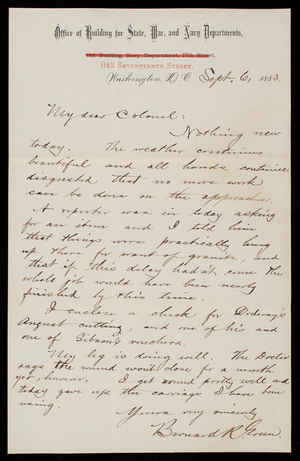 Office of Building for State, War, and Navy Departments,
612 Seventeenth Street.
Washington, D. C. Sept. 6, 1883.
My dear Colonel:
Nothing new
today. The weather continues
beautiful and all hands continue
disgusted that no more work
can be done on the approaches.
A reporter was in today asking
for an item and I told him
that things were practically hung
up there for want of granite, and
that if this delay hadn't come the
whole job would have been nearly
finished by this time.
I enclose a check for Ordway's
August cutting, and one of his and
one of Gibson's vouchers.
My leg is doing well. The Doctor
says the wound won't close for a month
yet, however. I get around pretty well and
today gave up the carriage I have been
using.
Yours very sincerely
Bernard R. Green